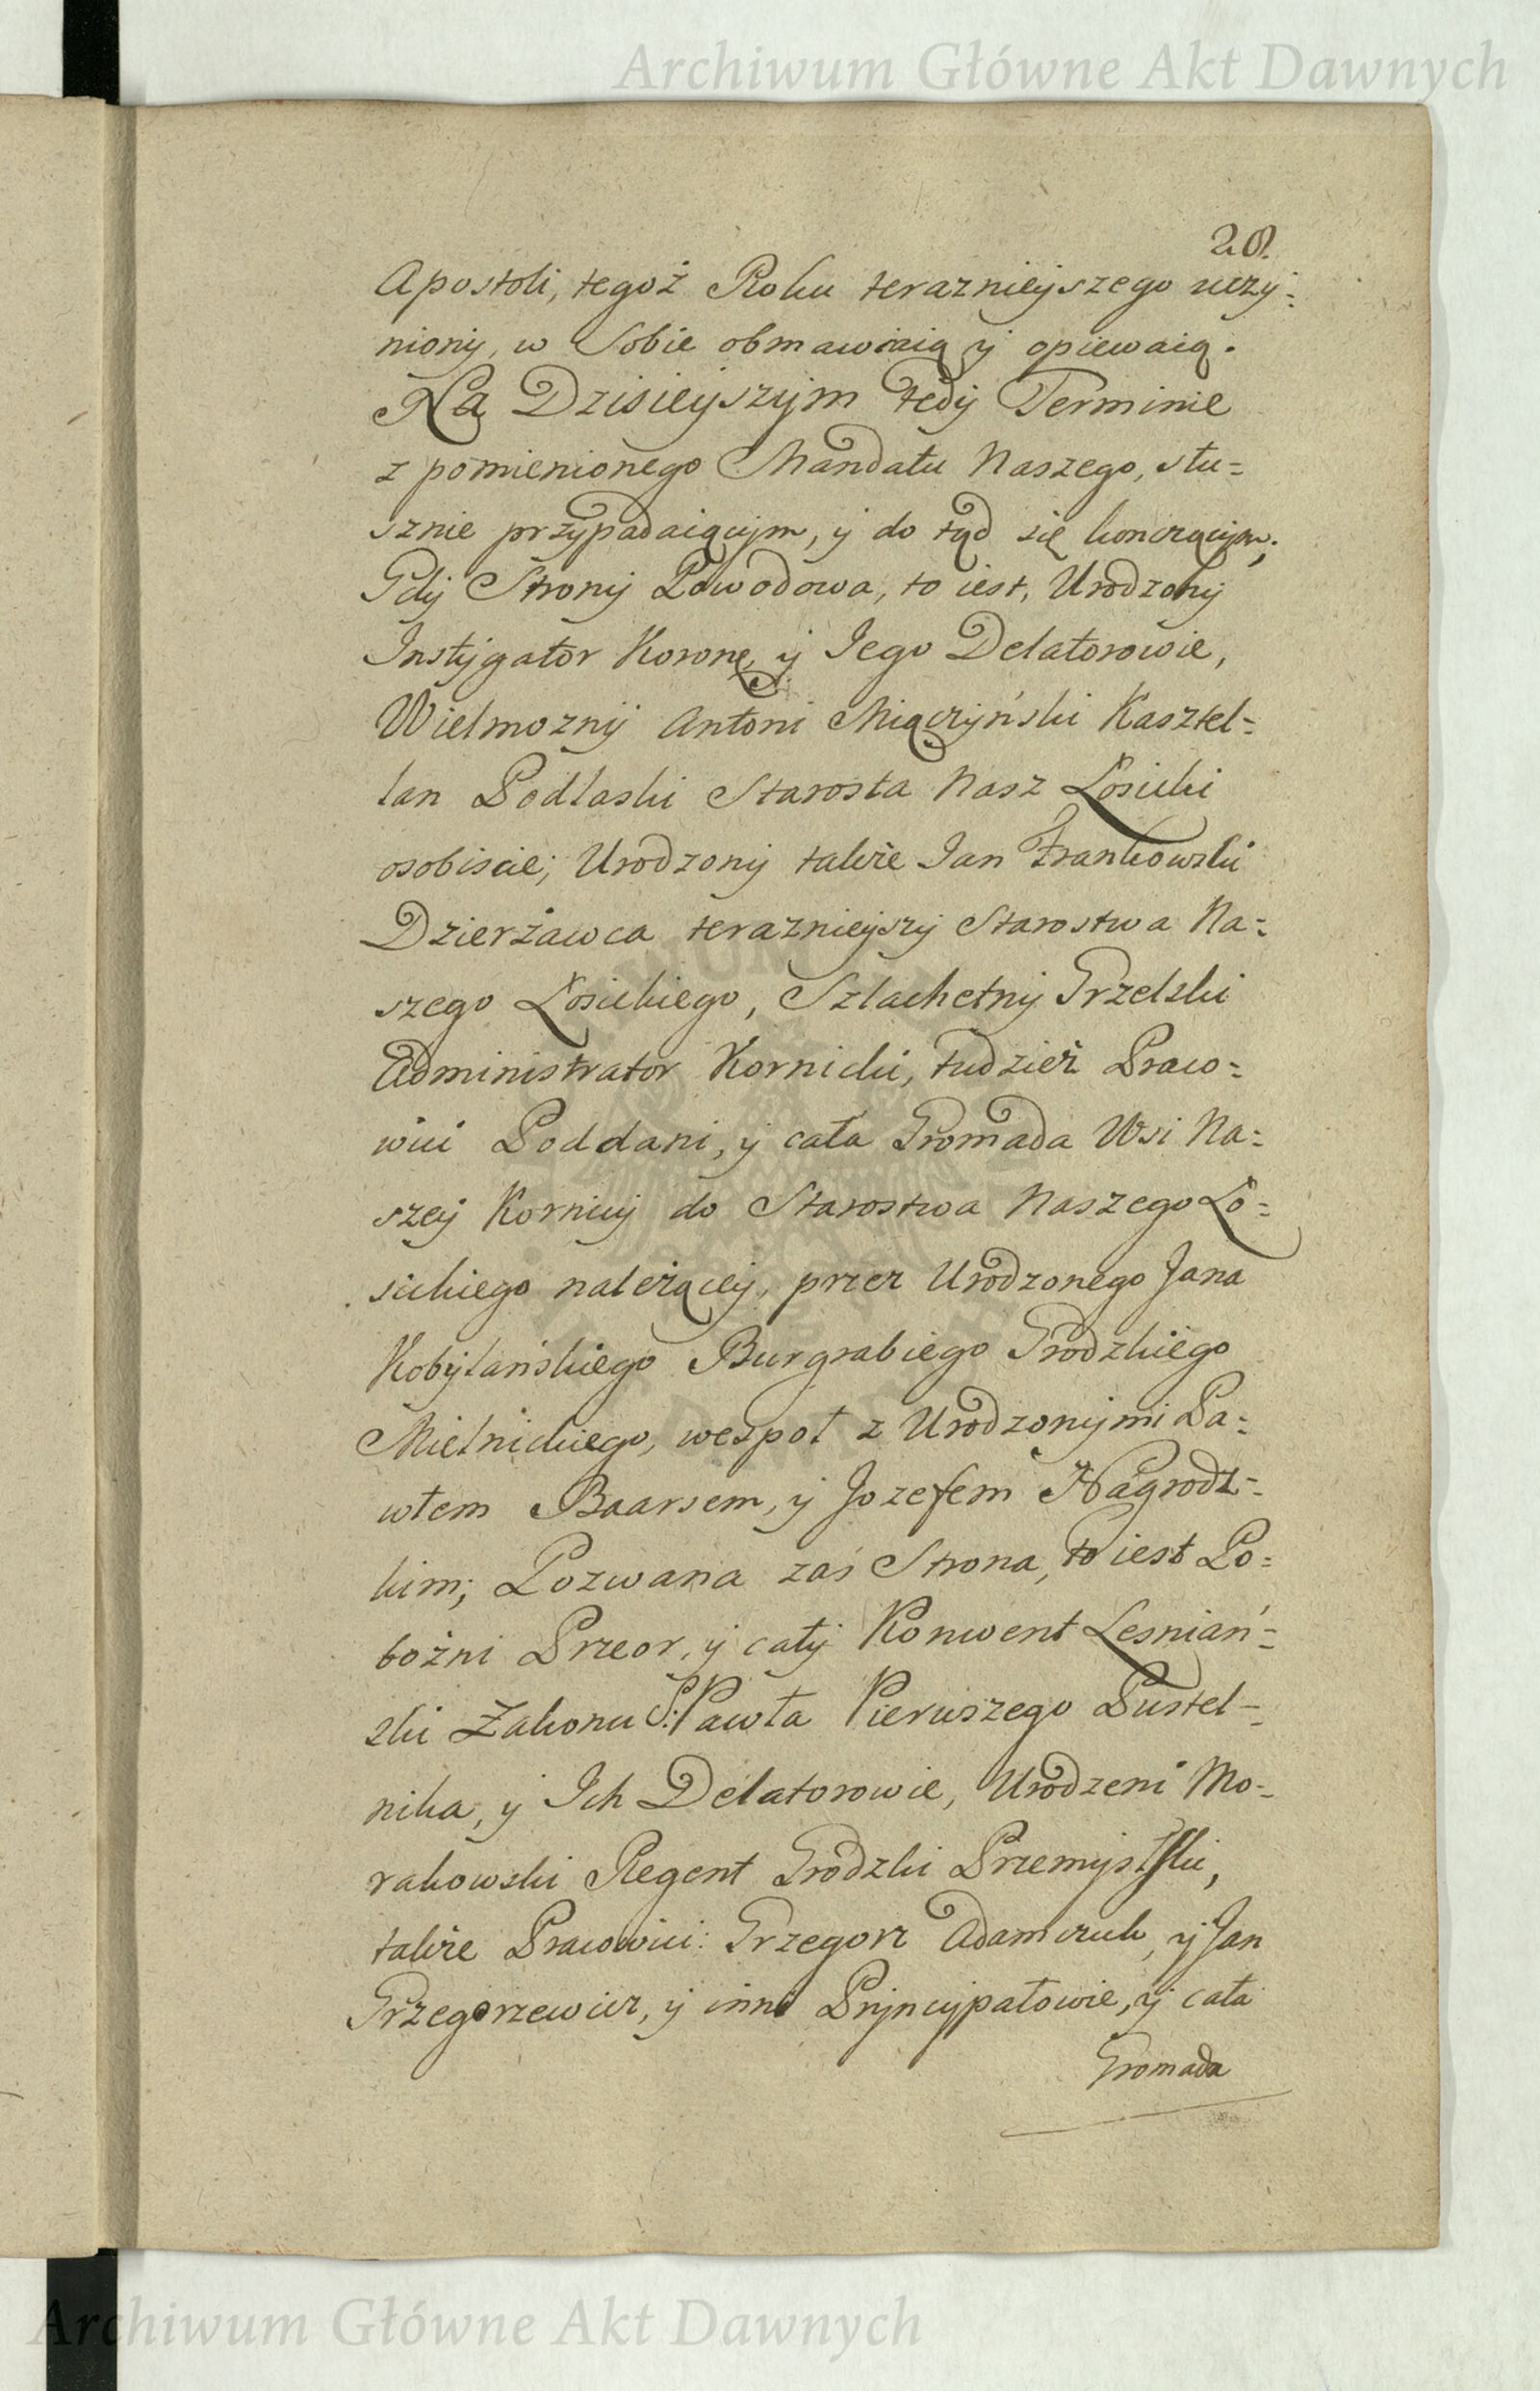 Archiwum Główne Akt Dawnych
28.
Apostoli, tegoż Roku terazniejszego uczy=
niony, w Sobie obmawiaią y opiewaią.
Na Dzisieyszym tedy Terminie
z pomienionego Mandatu Naszego, słu=
sznie przypadaiącym, y do tąd się kończącym;
Gdy Strony Powodowa, to iest, Urodzony
Instygator Koronę y Jego Delatorowie,
Wielmozny Antoni Miączyński Kasztel=
lan Podlaski Starosta Nasz Łosicki
osobiscie; Urodzony także Jan Frankowski
Dzierżawca terazniejszy Starostwa Na=
szego Łosickiego, Szlachetny Grzelski
Administrator Kornicki, tudzież Praco=
wici Poddani, y cała Gromada Wsi Na=
szey Kornicy do Starostwa Naszego Ło=
sickiego należącey, przez Urodzonego Jana
Kobylańskiego Burgrabiego Grodzkiego
Mielnickiego, wespoł z Urodzonymi Pa=
włem Baarsem, y Jozefem Nagrodz=
kim; Pozwana zaś Strona, to iest Po=
bożni Przeor, y cały Konwent Lesniań=
ski Zakonu S: Pawła Pierwszego Pustel=
nika, y Ich Delatorowie, Urodzeni Mo=
rakowski Regent Grodzki Przemyslski,
także Pracowici: Grzegorz Adamczuk, y Jan
Grzegorzewicz, y inni Pryncypałowie, y cała
Gromada
Archiwum Główne Akt Dawnych